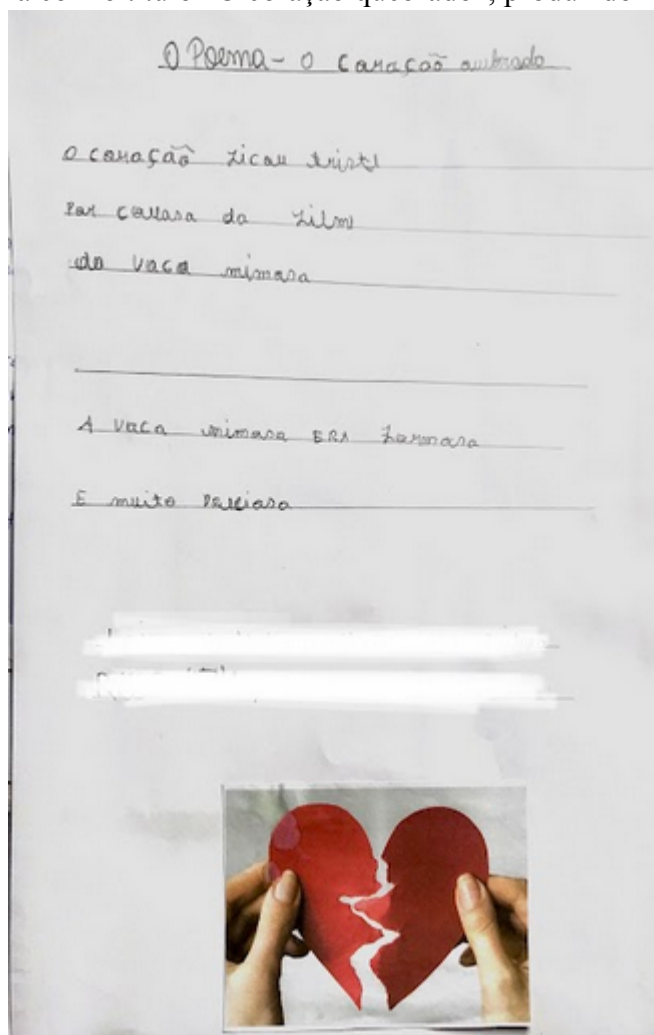 O Poema - O coração qubrado
O coração ficou triste
Por causa do filme
da vaca mimosa
A vaca mimosa ERA formosa
E muito Preciosa